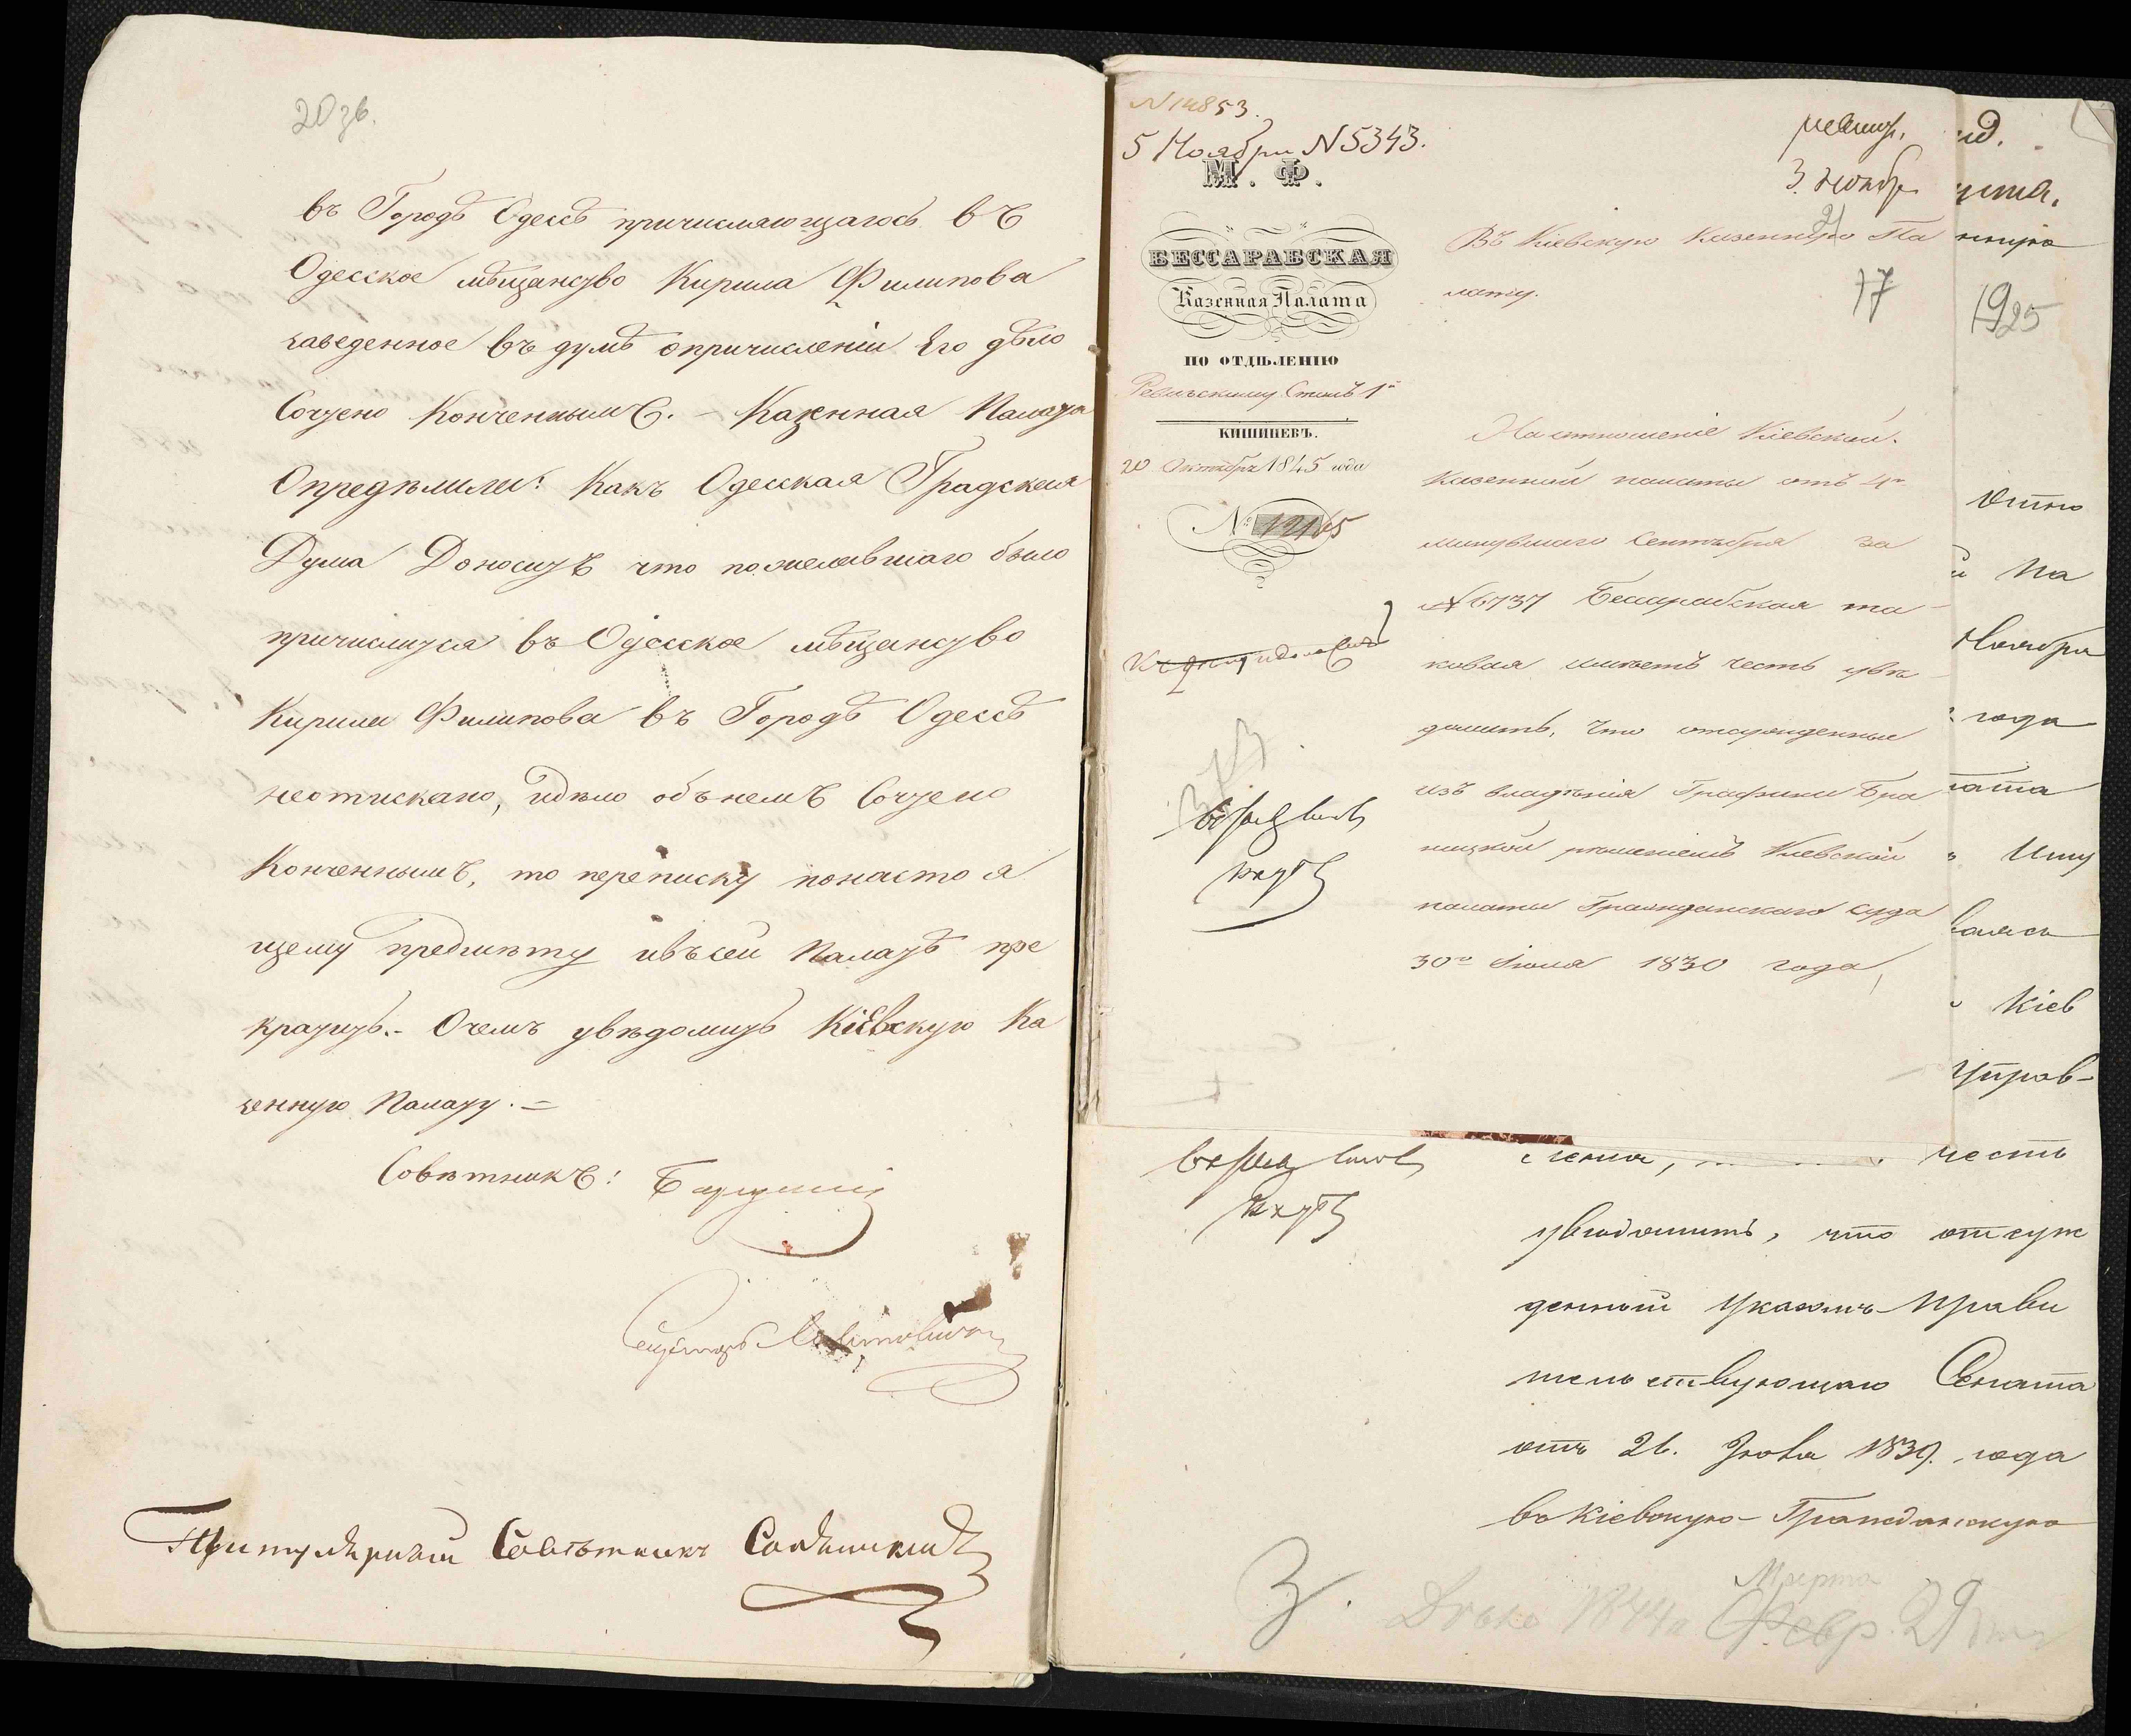 20 зв.
въ Городѣ Одессѣ причисляющагось въ
Одесское мѣщанство Кирила Филипова
заведенное въ думѣ опричисленіи Его дѣло
Сочтено Конченнымъ. – Казенная Палата
Опредѣлили: Какъ Одесская Градская
Дума Доноситъ что пожелавшаго было
причислится въ Одесское мѣщанство
Кирила Филипова въ Городѣ Одессѣ
неотискано, идѣло объ немъ Сочтено
Конченнымъ, то переписку понастоя
щему предмѣту ивъсей Палатѣ пре
кратить.- Очемъ увѣдомить Кіевскую Ка
зенную Палату. =
Совѣтникъ:
Титулярный Совѣтникъ
N 14853.
5 Ноября N 5343.
М. Ф.
БЕССАРАБСКАЯ
Казенная Палата
ПО ОТДѢЛЕНІЮ
Ревизскому Столъ 1й
КИШИНЕВЪ.
20 Октября 1845 года
№ 12165
3 ноября
21
17
Въ Кіевскую Казенную Па
лату.
На отношеніе Кіевской
Казенной палаты отъ 4го
минувшаго Сентября за
N 6737 Бессарабская та
ковая имѣетъ честь увѣ
домить, что отсужденные
изъ владѣнія Графини Бра
ницкой рѣшеніемъ Кіевской
палаты Гражданскаго суда
30го Іюля 1830 года,
1925
Отно
Па
Ноября
года
Кіев
Управ-
честь
увѣдомить, что отсуж
денный Указомъ Прави
тельствующаго Сената
отъ 26. Іюля 1839. года
въ Кіевскую Гражданскую
3.
Дѣло 1844 Марта
Февр. 29